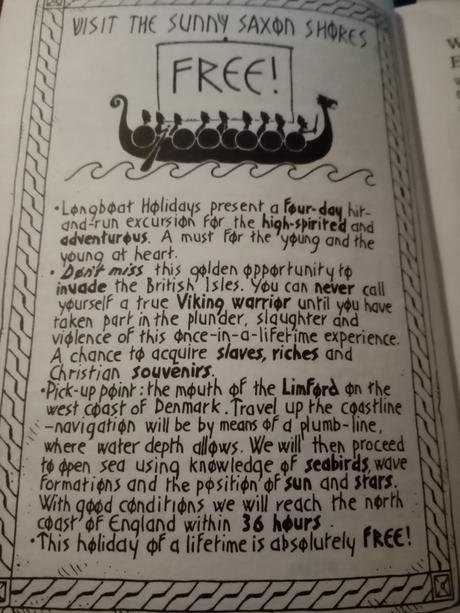 VISIT THE SUNNY SAXON SHORES
FREE!
•Longboat Holidays present a four-day hit-
and-run excursion for the high-spirited and
adventurous. A must for the young and the
young at heart.
• Don't miss this golden opportunity to
invade the British Isles. You can never call
yourself a true Viking warrior until you have
taken part in the plunder, slaughter and
violence of this once-in-a-lifetime experience.
A chance to acquire slaves, riches and
Christian souvenirs.
•Pick-up point: the mouth of the Limford on the
west coast of Denmark. Travel up the coastline
-navigation will be by means of a plumb-line,
where water depth allows. We will then proceed
to open sea using knowledge of seabirds, wave
formations and the position of sun and stars.
With good conditions we will reach the north
coast of England within 36 hours.
•This holiday of a lifetime is absolutely FREE!